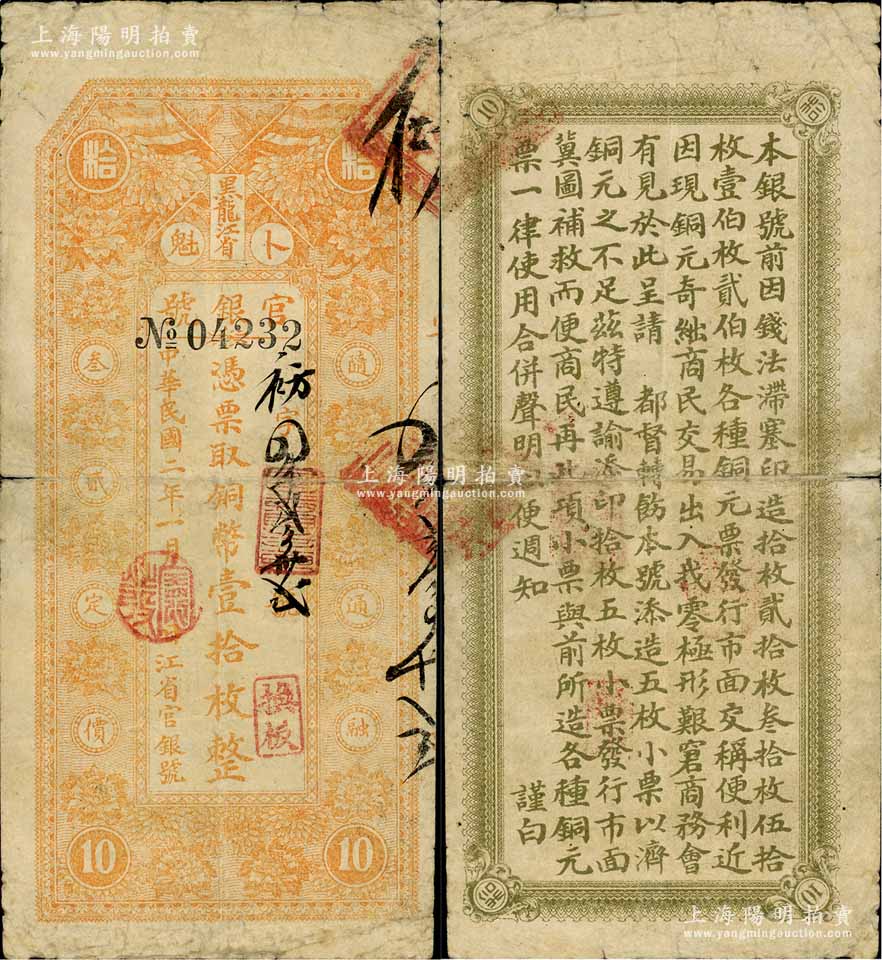 上海陽明拍賣
www.yangmingauction.com
拾
拾
黑龍江省
卜魁
官
銀
號
№04232
憑票取銅幣壹拾枚整
中華民國二年一月
江省官銀號
隨
通
融
叁
貳
定
價
換板
10
10
上海陽明拍賣
www.yangmingauction.com
10
本銀號前因錢法滯塞印造拾枚貳拾枚叁拾枚伍拾
枚壹伯枚貳伯枚各種銅元票發行市面交稱便利近
因現銅元奇絀商民交易出入找零極形艱窘商務會
有見於此呈請 都督轉飭本號添造五枚小票以濟
銅元之不足茲特遵諭添印拾枚五枚小票發行市面
冀圖補救而便商民再此項小票與前所造各種銅元
票一律使用合併聲明 便週知
謹白
10
上海陽明拍賣
www.yangmingauction.com